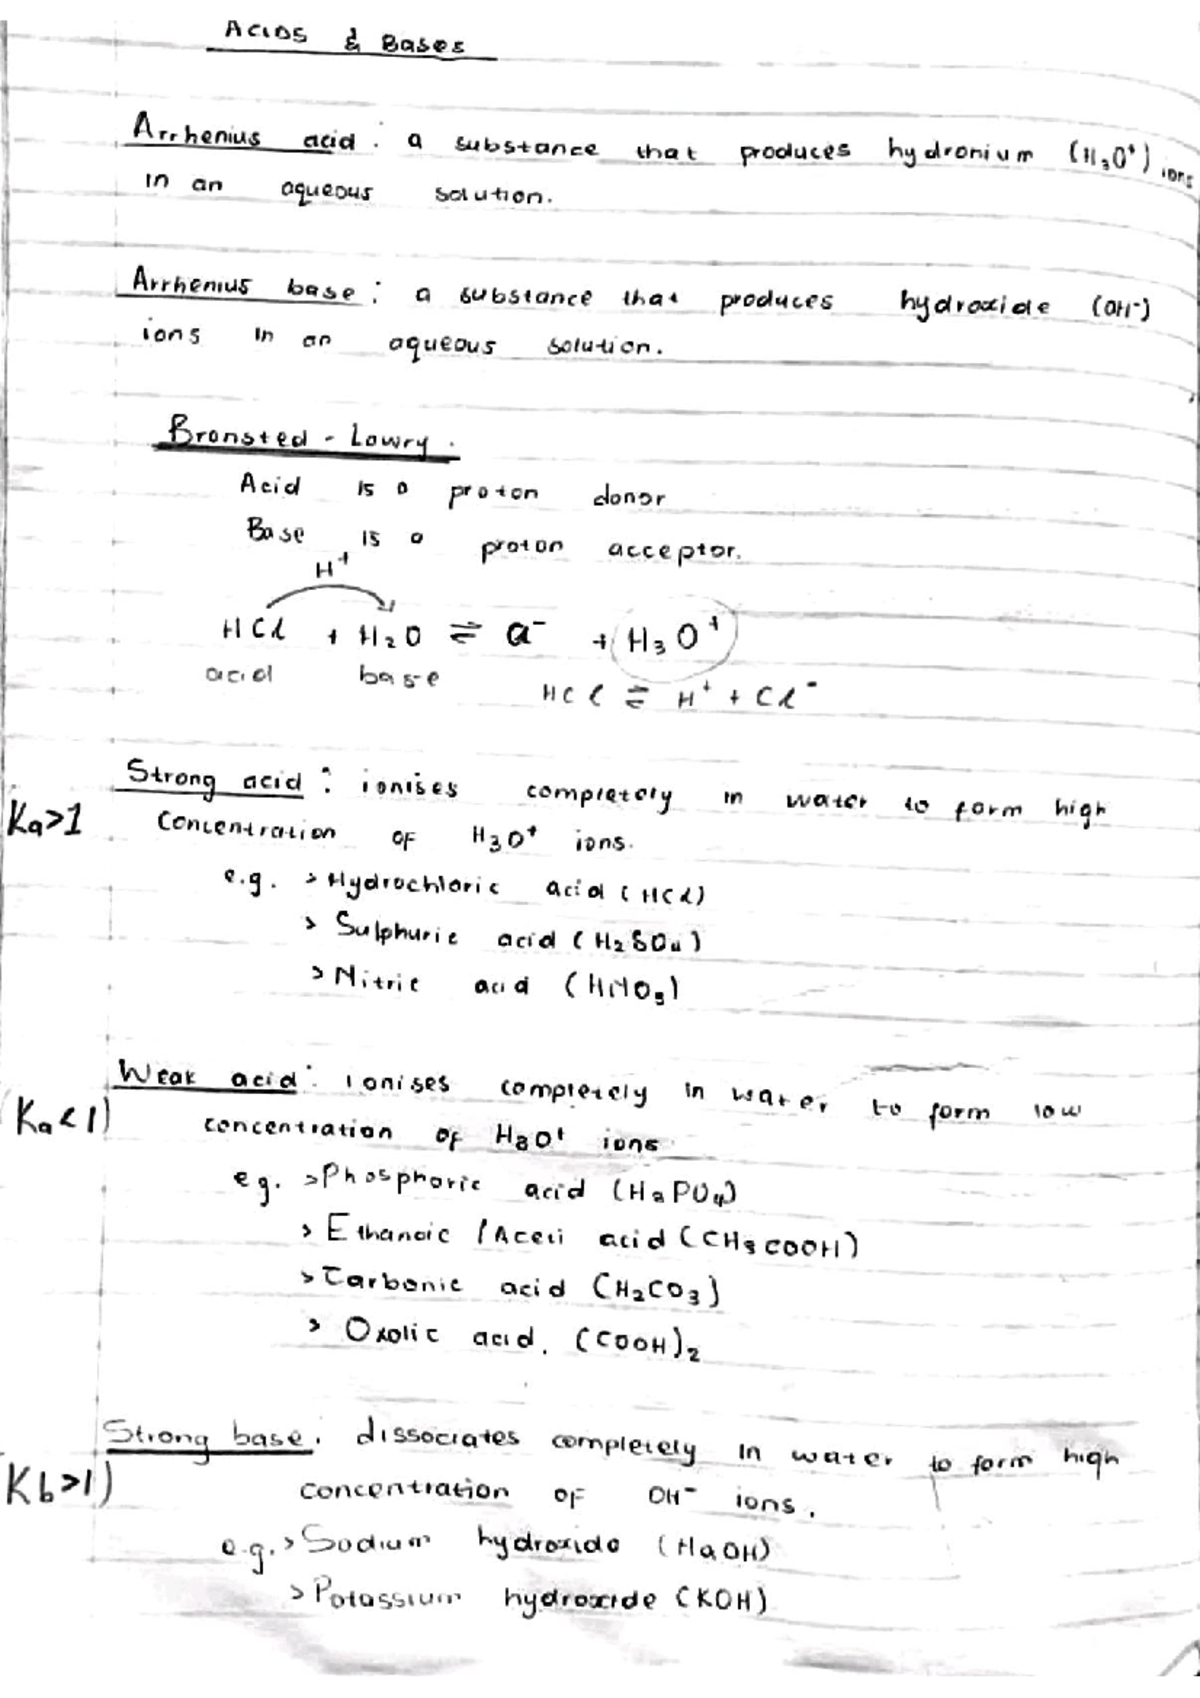 ACIDS & BASES
Arrhenius acid : a substance that produces hydronium (H₃O⁺) ions
in an aqueous solution.
Arrhenius base : a substance that produces hydroxide (OH⁻)
ions in an aqueous solution.
Bronsted - Lowry .
Acid is a proton donor
Base is a proton acceptor.
H⁺
HCl + H₂O ⇌ Cl⁻ + H₃O⁺
acid base
HCl ⇌ H⁺ + Cl⁻
Strong acid : ionises completely in water to form high
Ka>1 concentration of H₃O⁺ ions.
e.g. > Hydrochloric acid (HCl)
> Sulphuric acid (H₂SO₄)
> Nitric acid (HNO₃)
Weak acid : ionises completely in water to form low
(Ka<1) concentration of H₃O⁺ ions
eg. > Phosphoric acid (H₃PO₄)
> Ethanoic / Aceti acid (CH₃COOH)
> Carbonic acid (H₂CO₃)
> Oxolic acid. (COOH)₂
Strong base : dissociates completely in water to form high
Kb>1) concentration of OH⁻ ions.
e.g. > Sodium hydroxide (NaOH)
> Potassium hydroxide (KOH)